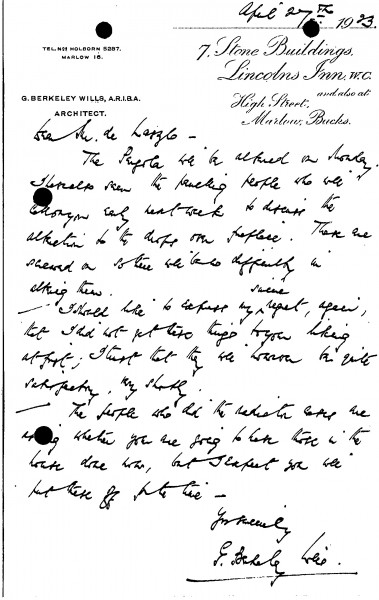 April 27th 1923.
TEL. Nos HOLBORN 5287.
MARLOW 16.
7, Stone Buildings,
Lincolns Inn, W.C.
and also at
High Street,
Marlow, Bucks.
G. BERKELEY WILLS, A.R.I.B.A.
ARCHITECT.
Dear Mr. de Laszlo –
The Pergola will be altered on Monday.
I have also seen the panelling people who will
early next week to discuss the
alteration to the drops over fireplace. These are
screwed on so there will be no difficulty in
altering them.
– I should like to express my sincere regret, again,
that I did not get these things to your liking
at first; I trust that they will however be quite
satisfactory, very shortly.
– The people who did the radiator cases are
asking whether you are going to have those in the
house done now, but I expect you will
put these off for the time –
Yrs sincerely
G. Berkeley Wills.